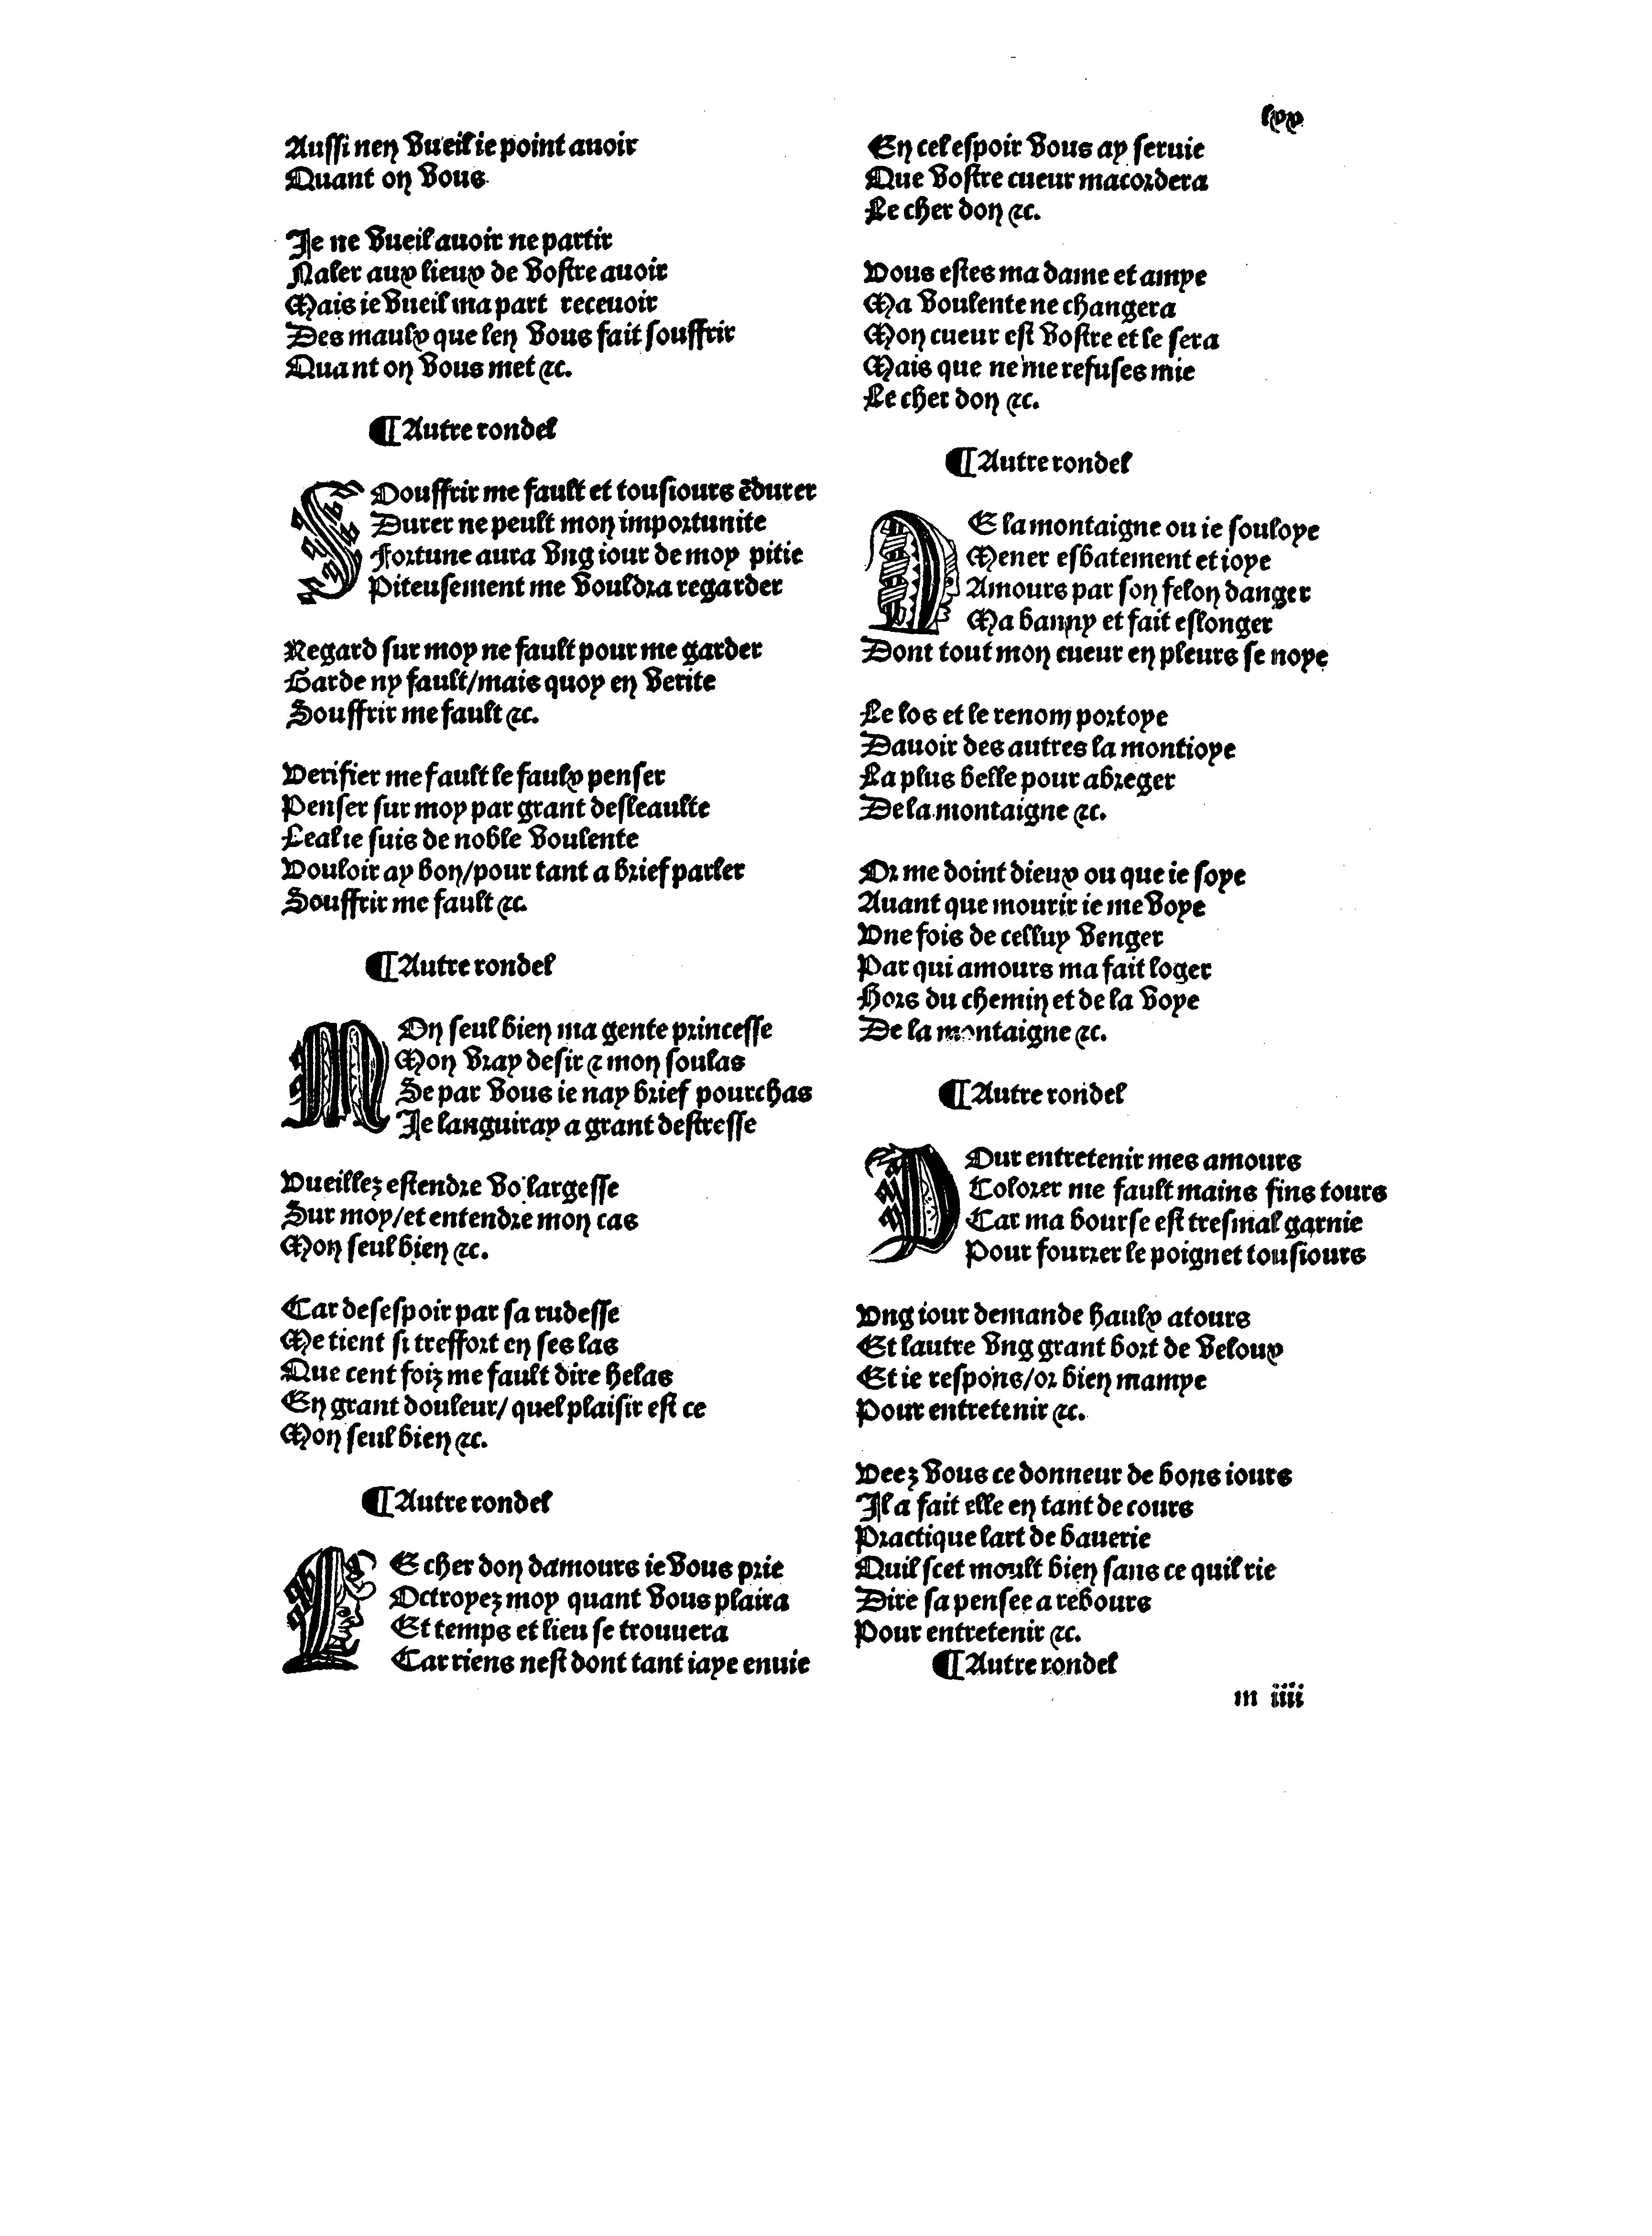 lxx
Aussi nen vueil ie point auoir
Quant on vous
Je ne vueil auoir ne partir
Naler aux lieux de vostre auoir
Mais ie vueil ma part receuoir
Des maulx que len vous fait souffrir
Quant on vous met ⁊c.
¶ Autre rondel
SOouffrir me fault et tousiours ẽdurer
Durer ne peult mon importunite
Fortune aura vng iour de moy pitie
Piteusement me vouldra regarder
Regard sur moy ne fault pour me garder
Garde ny fault/mais quoy en verite
Souffrir me fault ⁊c.
Verifier me fault le faulx penser
Penser sur moy par grant desleaulte
Leal ie suis de noble voulente
Vouloir ay bon/pour tant a brief parler
Souffrir me fault ⁊c.
¶ Autre rondel
MOn seul bien ma gente princesse
Mon vray desir ⁊ mon soulas
Se par vous ie nay brief pourchas
Je languiray a grant destresse
Vueillez estendre vo largesse
Sur moy/et entendre mon cas
Mon seul bien ⁊c.
Car desespoir par sa rudesse
Me tient si treffort en ses las
Que cent foiz me fault dire helas
En grant douleur/ quel plaisir est ce
Mon seul bien ⁊c.
¶ Autre rondel
LE cher don damours ie vous prie
Octroyez moy quant vous plaira
Et temps et lieu se trouuera
Car riens nest dont tant iaye enuie
En cel espoir vous ay seruie
Que vostre cueur macordera
Le cher don ⁊c.
Vous estes ma dame et amye
Ma voulente ne changera
Mon cueur est vostre et le sera
Mais que ne me refuses mie
Le cher don ⁊c.
¶ Autre rondel
DE la montaigne ou ie souloye
Mener esbatement et ioye
Amours par son felon danger
Ma banny et fait eslonger
Dont tout mon cueur en pleurs se noye
Le los et le renom portoye
Dauoir des autres la montioye
La plus belle pour abreger
De la montaigne ⁊c.
Or me doint dieux ou que ie soye
Auant que mourir ie me voye
Vne fois de celluy venger
Par qui amours ma fait loger
Hors du chemin et de la voye
De la montaigne ⁊c.
¶ Autre rondel
POur entretenir mes amours
Colorer me fault mains fins tours
Car ma bourse est tresmal garnie
Pour fourrer le poignet tousiours
Vng iour demande haulx atours
Et lautre vng grant bort de veloux
Et ie respons/or bien mamye
Pour entretenir ⁊c.
Veez vous ce donneur de bons iours
Il a fait elle en tant de cours
Practique lart de bauerie
Quil scet moult bien sans ce quil rie
Dire sa pensee a rebours
Pour entretenir ⁊c.
¶ Autre rondel
m iiii